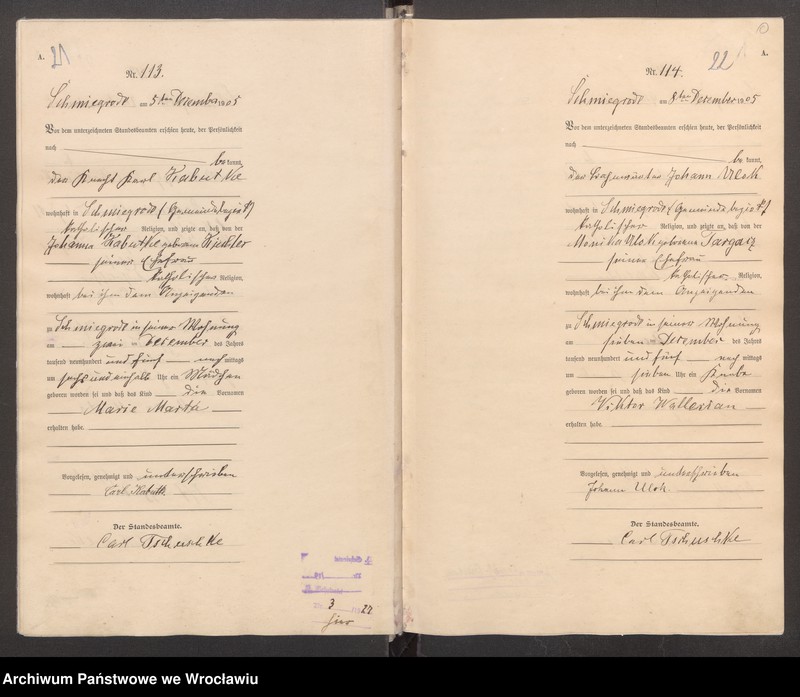 A.
21
Nr. 113.
Schmiegrode am 5ten Dezember 1905
Vor dem unterzeichneten Standesbeamten erschien heute, der Persönlichkeit
nach
bekannt,
der Knecht Karl Kabutke
wohnhaft in Schmiegrode (Gemeindebezirk)
katholischer Religion, und zeigte an, daß von der
Johanna Kabutke geborenen
seiner Ehefrau
katholischer Religion,
wohnhaft bei ihm dem Anzeigenden
zu Schmiegrode in seiner Wohnung
am zwei ten Dezember des Jahres
tausend neunhundert und fünf nachmittags
um sechs und einhalb Uhr ein Mädchen
geboren worden sei und daß das Kind die Vornamen
Marie Marta
erhalten habe.
Vorgelesen, genehmigt und unterschrieben
Carl Kabutke
Der Standesbeamte.
Carl Tschuschke
3
22
A.
22
Nr. 114.
Schmiegrode am 8ten Dezember 1905
Vor dem unterzeichneten Standesbeamten erschien heute, der Persönlichkeit
nach
bekannt,
der Johann Ulok
wohnhaft in Schmiegrode (Gemeindebezirk)
katholischer Religion, und zeigte an, daß von der
Monika Ulok geborene Targacz
seiner Ehefrau
katholischer Religion,
wohnhaft bei ihm dem Anzeigenden
zu Schmiegrode in seiner Wohnung
am sieben ten Dezember des Jahres
tausend neunhundert und fünf nachmittags
um sieben Uhr ein Knabe
geboren worden sei und daß das Kind die Vornamen
Viktor Wallerian
erhalten habe.
Vorgelesen, genehmigt und unterschrieben
Johann Ulok
Der Standesbeamte.
Carl Tschuschke
Archiwum Państwowe we Wrocławiu